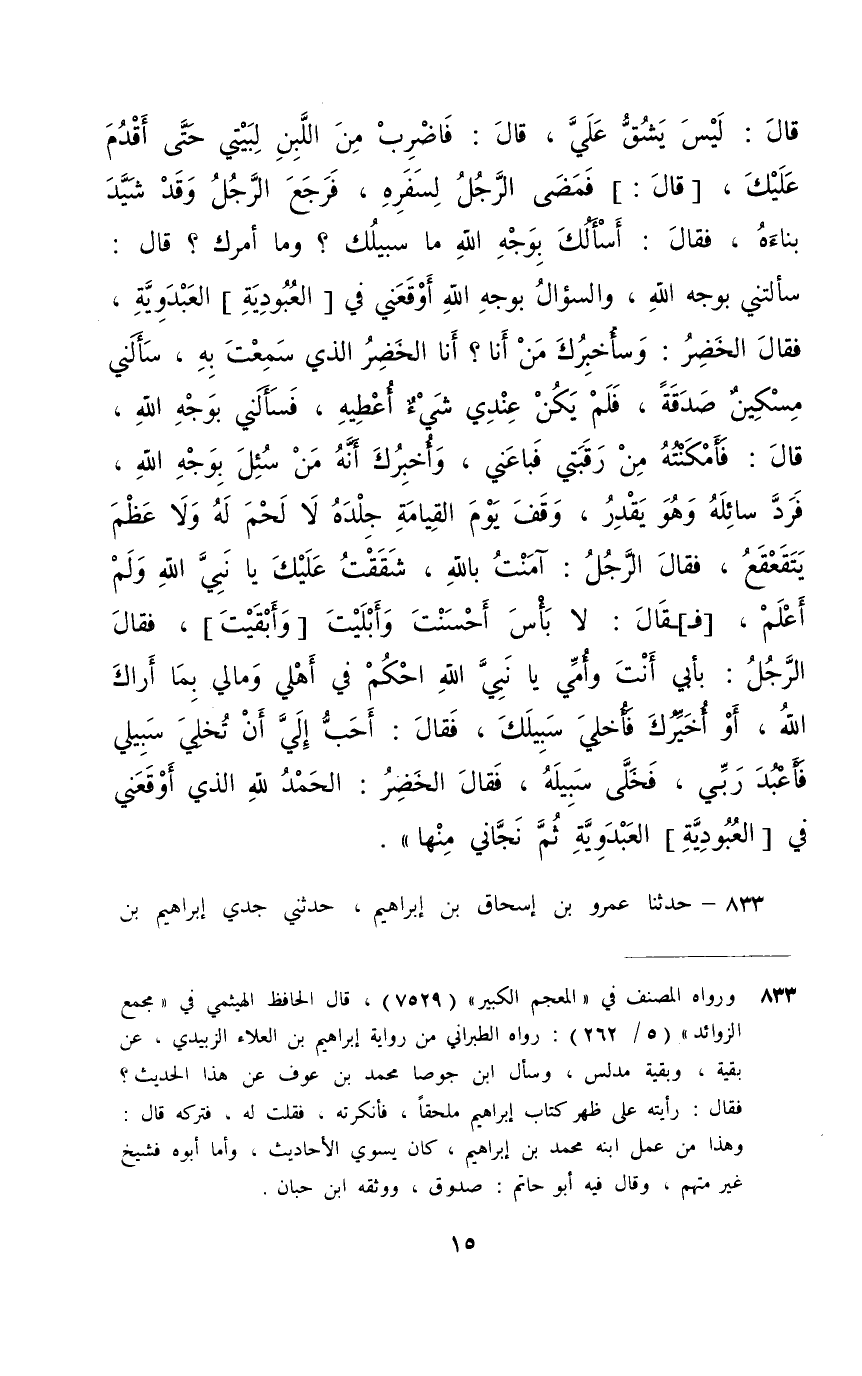 قالَ : لَيْسَ يَشُقُّ عَلَيَّ ، قالَ : فَاضْرِبْ مِنَ اللَّبِنِ لِبَيْتِي حَتَّى أَقْدُمَ
عَلَيْكَ ، [ قالَ : ] فَمَضَى الرَّجُلُ لِسَفَرِهِ ، فَرَجَعَ الرَّجُلُ وَقَدْ شَيَّدَ
بناءَهُ ، فقالَ : أَسْأَلُكَ بِوَجْهِ اللهِ ما سبيلُك ؟ وما أمرك ؟ قال :
سألتني بوجه اللهِ ، والسؤالُ بوجهِ اللهِ أَوْقَعَني في [ العُبُودِيَةِ ] العَبْدَوِيَّةِ ،
فقالَ الخَضِرُ : وَسأُخبِرُكَ مَنْ أنا ؟ أنا الخَضِرُ الذي سَمِعْتَ بِهِ ، سَأَلَني
مِسْكِينٌ صَدَقَةً ، فَلَمْ يَكُنْ عِنْدِي شَيْءٌ أُعْطِيهِ ، فَسَأَلَني بوَجْهِ اللهِ ،
قالَ : فَأَمْكَنْتُهُ مِنْ رَقَبَتِي فَباعَني ، وَأُخبِرُكَ أَنَّهُ مَنْ سُئِلَ بِوَجْهِ اللهِ ،
فَرَدَّ سائِلَهُ وَهُوَ يَقْدِرُ ، وَقَفَ يَوْمَ القِيامَةِ جِلْدَهُ لَا لَحْمَ لَهُ وَلَا عَظْمَ
يَتَقَعْقَعُ ، فقالَ الرَّجُلُ : آمَنْتُ باللهِ ، شَقَقْتُ عَلَيْكَ يا نَبِيَّ اللهِ وَلَمْ
أَعْلَمْ ، [فـ]ـقَالَ : لا بَأْسَ أَحْسَنْتَ وَأَبْلَيْتَ [ وَأَبْقَيْتَ ] ، فقالَ
الرَّجُلُ : بأبي أَنْتَ وأُمِّي يا نَبِيَّ اللهِ احْكُمْ في أَهْلي وَمالي بِمَا أَراكَ
اللهُ ، أَوْ أُخَيِّرُكَ فَأُخليَ سَبِيلَكَ ، فَقالَ : أَحَبُّ إِلَيَّ أَنْ تُخلِيَ سَبِيلي
فَأَعْبُدَ رَبِّي ، فَخَلَّى سَبِيلَهُ ، فَقالَ الخَضِرُ : الحَمْدُ للهِ الذي أَوْقَعَني
في [ العُبُودِيَّةِ ] العَبْدَوِيَّةِ ثُمَّ نَجَّاني مِنْها » .
٨٣٣ – حدثنا عمرو بن إسحاق بن إبراهيم ، حدثني جدي إبراهيم بن
٨٣٣ ورواه المصنف في « المعجم الكبير » ( ٧٥٢٩ ) ، قال الحافظ الهيثمي في « مجمع
الزوائد » ( ٥ / ٢٦٢ ) : رواه الطبراني من رواية إبراهيم بن العلاء الزبيدي ، عن
بقية ، وبقية مدلس ، وسأل ابن جوصا محمد بن عوف عن هذا الحديث ؟
فقال : رأيته على ظهر كتاب إبراهيم ملحقاً ، فأنكرته ، فقلت له ، فتركه قال :
وهذا من عمل ابنه محمد بن إبراهيم ، كان يسوي الأحاديث ، وأما أبوه فشيخ
غير متهم ، وقال فيه أبو حاتم : صدوق ، ووثقه ابن حبان .
١٥